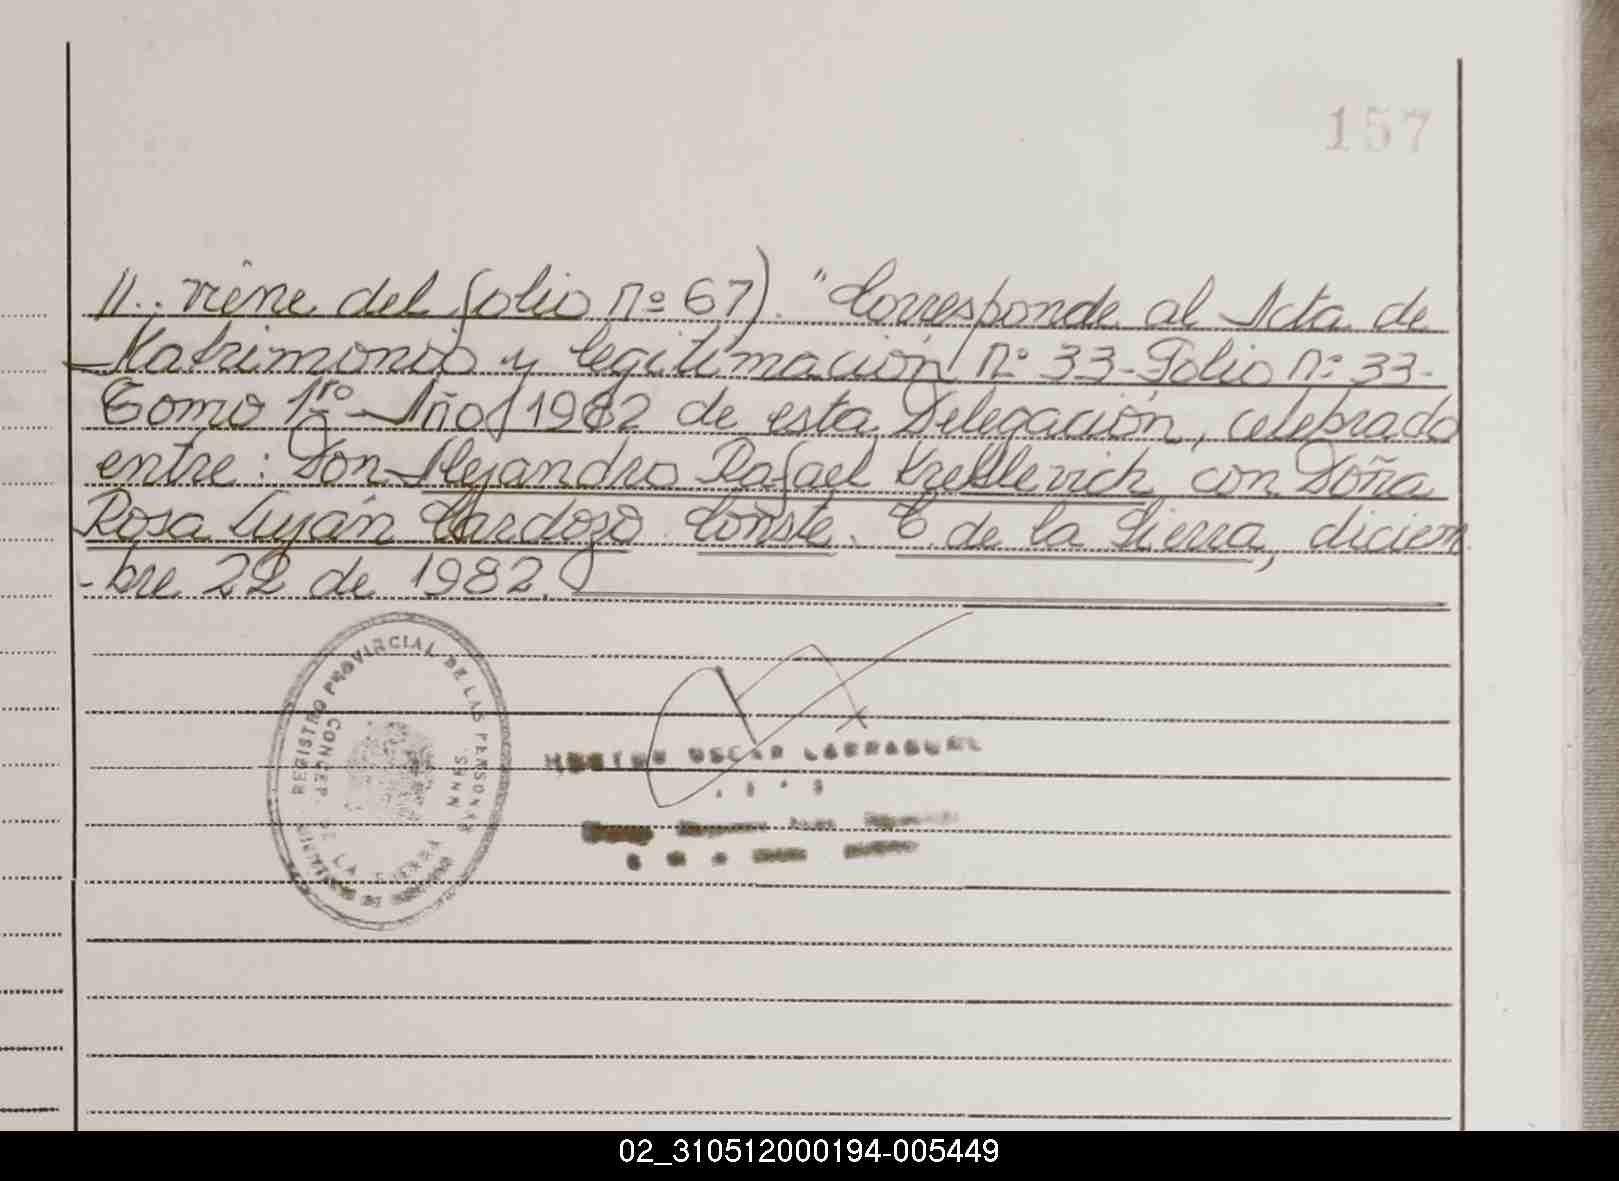 157
//.. viene del folio nº 67). "Corresponde al Acta de
Matrimonio y legitimación nº 33 - Folio nº 33 -
Tomo 1ro - Año 1982 de esta Delegación, celebrado
entre: Don Alejandro Rafael Kreklevich con Doña
Rosa Luján Cardozo. Conste. C. de la Sierra, diciem
-bre 22 de 1982.
REGISTRO PROVINCIAL DE LAS PERSONAS
CONCEP. DE LA SIERRA
MNES
OSCAR
02_310512000194-005449